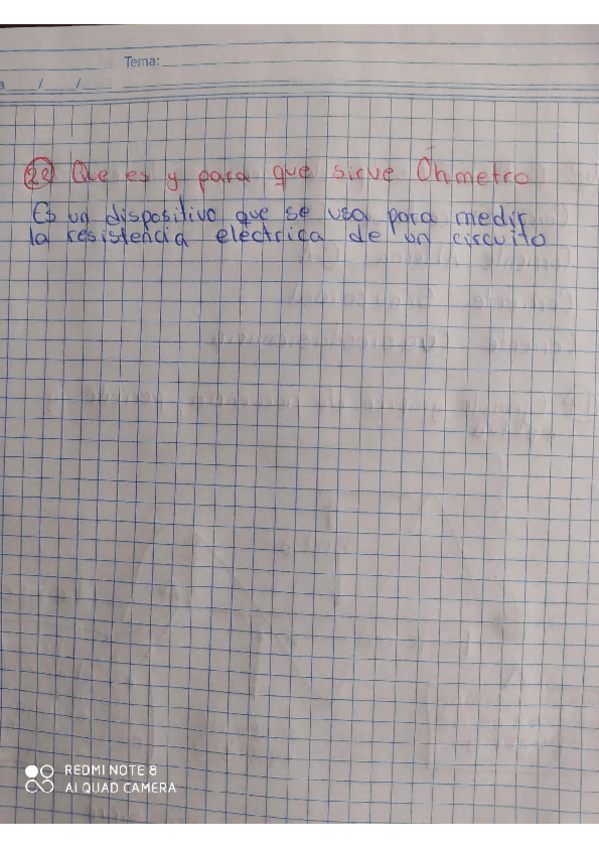 Tema:
a / /
22 Que es y para que sirve Óhmetro
Es un dispositivo que se usa para medir
la resistencia eléctrica de un circuito
REDMI NOTE 8
AI QUAD CAMERA